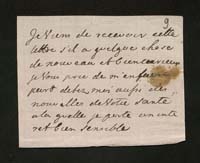 9
Je Viens de recevoir cette
lettre s'il a quelque chose
de nouveau et bien curieux
je Vous prie de m'en faire
part debes mes aussi des
nouvelles de Votre Santé
a la quelle je porte un inte
ret bien sensible